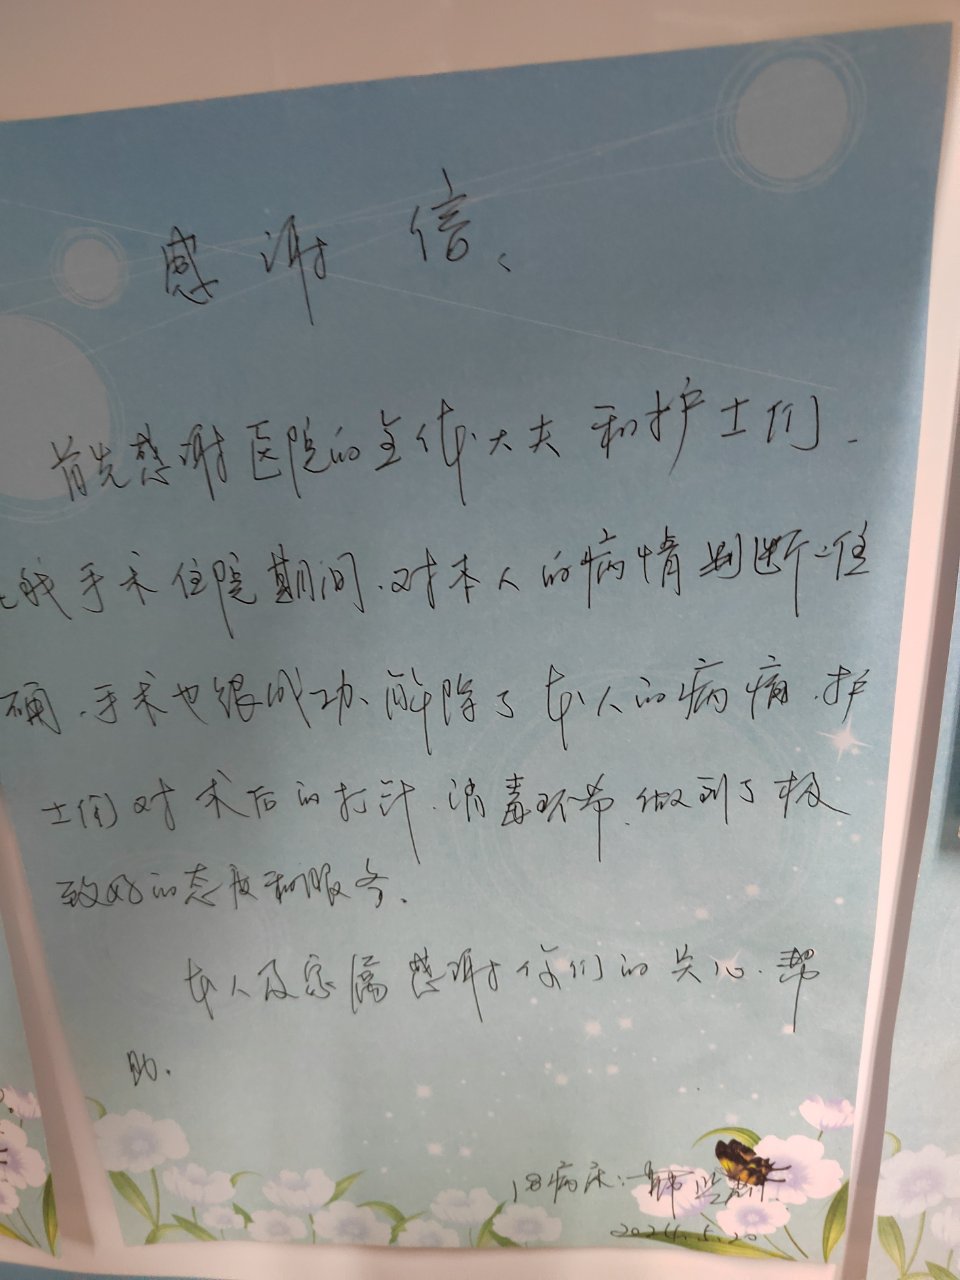 感谢信、
首先感谢医院的全体大夫和护士们.
我手术住院期间、对本人的病情判断准
确、手术也很成功、解除了本人的病痛、护
士们对术后的打针、消毒环节、做到了极
致好的态度和服务.
本人及家属感谢你们的关心、帮
助.
18病床:
2024.5.20